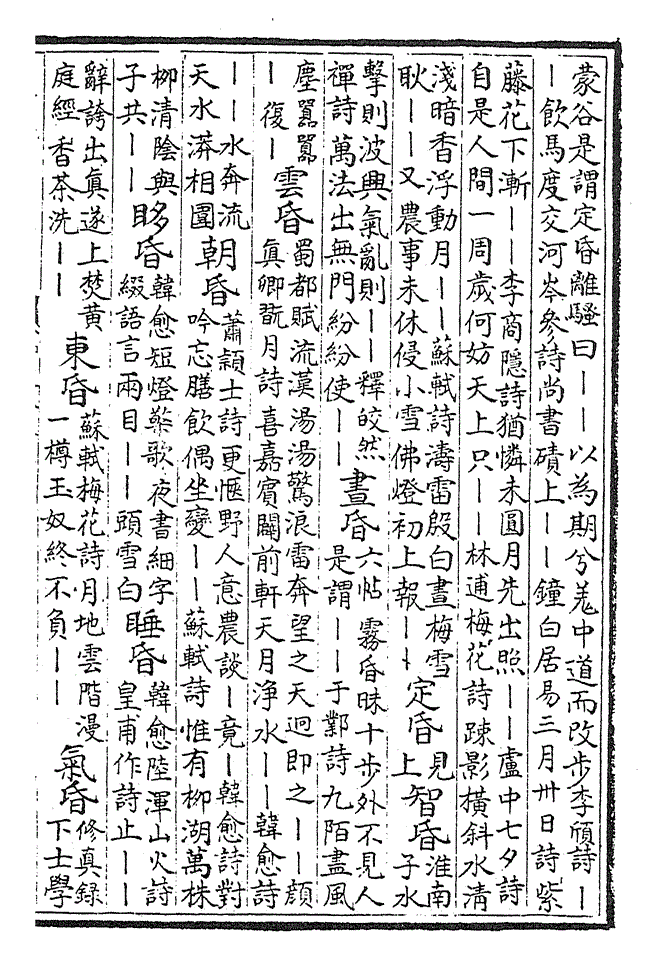 蒙谷是謂定昏離騷曰｜｜以為期兮羌中道而改步李頎詩｜
｜飲馬度交河岑參詩尚書磧上｜｜鐘白居易三月卅日詩紫
藤花下漸｜｜李商隱詩猶憐未圓月先出照｜｜盧中七夕詩
自是人間一周歲何妨天上只｜｜林逋梅花詩疎影橫斜水清
淺暗香浮動月｜｜蘇軾詩濤雷殷白晝梅雪
耿｜｜又農事未休侵小雪佛燈初上報｜｜
定昏
見
上
智昏
淮南
子水
擊則波興氣亂則｜｜釋皎然
禪詩萬法出無門紛紛使｜｜
晝昏
六帖霧昏昧十步外不見人
是謂｜｜于鄴詩九陌盡風
塵囂囂
｜復｜
雲昏
蜀都賦流漢湯湯驚浪雷奔望之天迥即之｜｜顏
真卿翫月詩喜嘉賓闢前軒天月淨水｜｜韓愈詩
｜｜水奔流
天水漭相圍
朝昏
蕭穎士詩更愜野人意農談｜竟｜韓愈詩對
吟忘膳飲偶坐變｜｜蘇軾詩惟有柳湖萬株
柳清陰與
子共｜｜
眵昏
韓愈短燈檠歌夜書細字
綴語言兩目｜｜頭雪白
睡昏
韓愈陸渾山火詩
皇甫作詩止｜｜
辭誇出真遂上焚黃
庭經香茶洗｜｜
東昏
蘇軾梅花詩月地雲階漫
一樽玉奴終不負｜｜
氣昏
修真錄
下士學